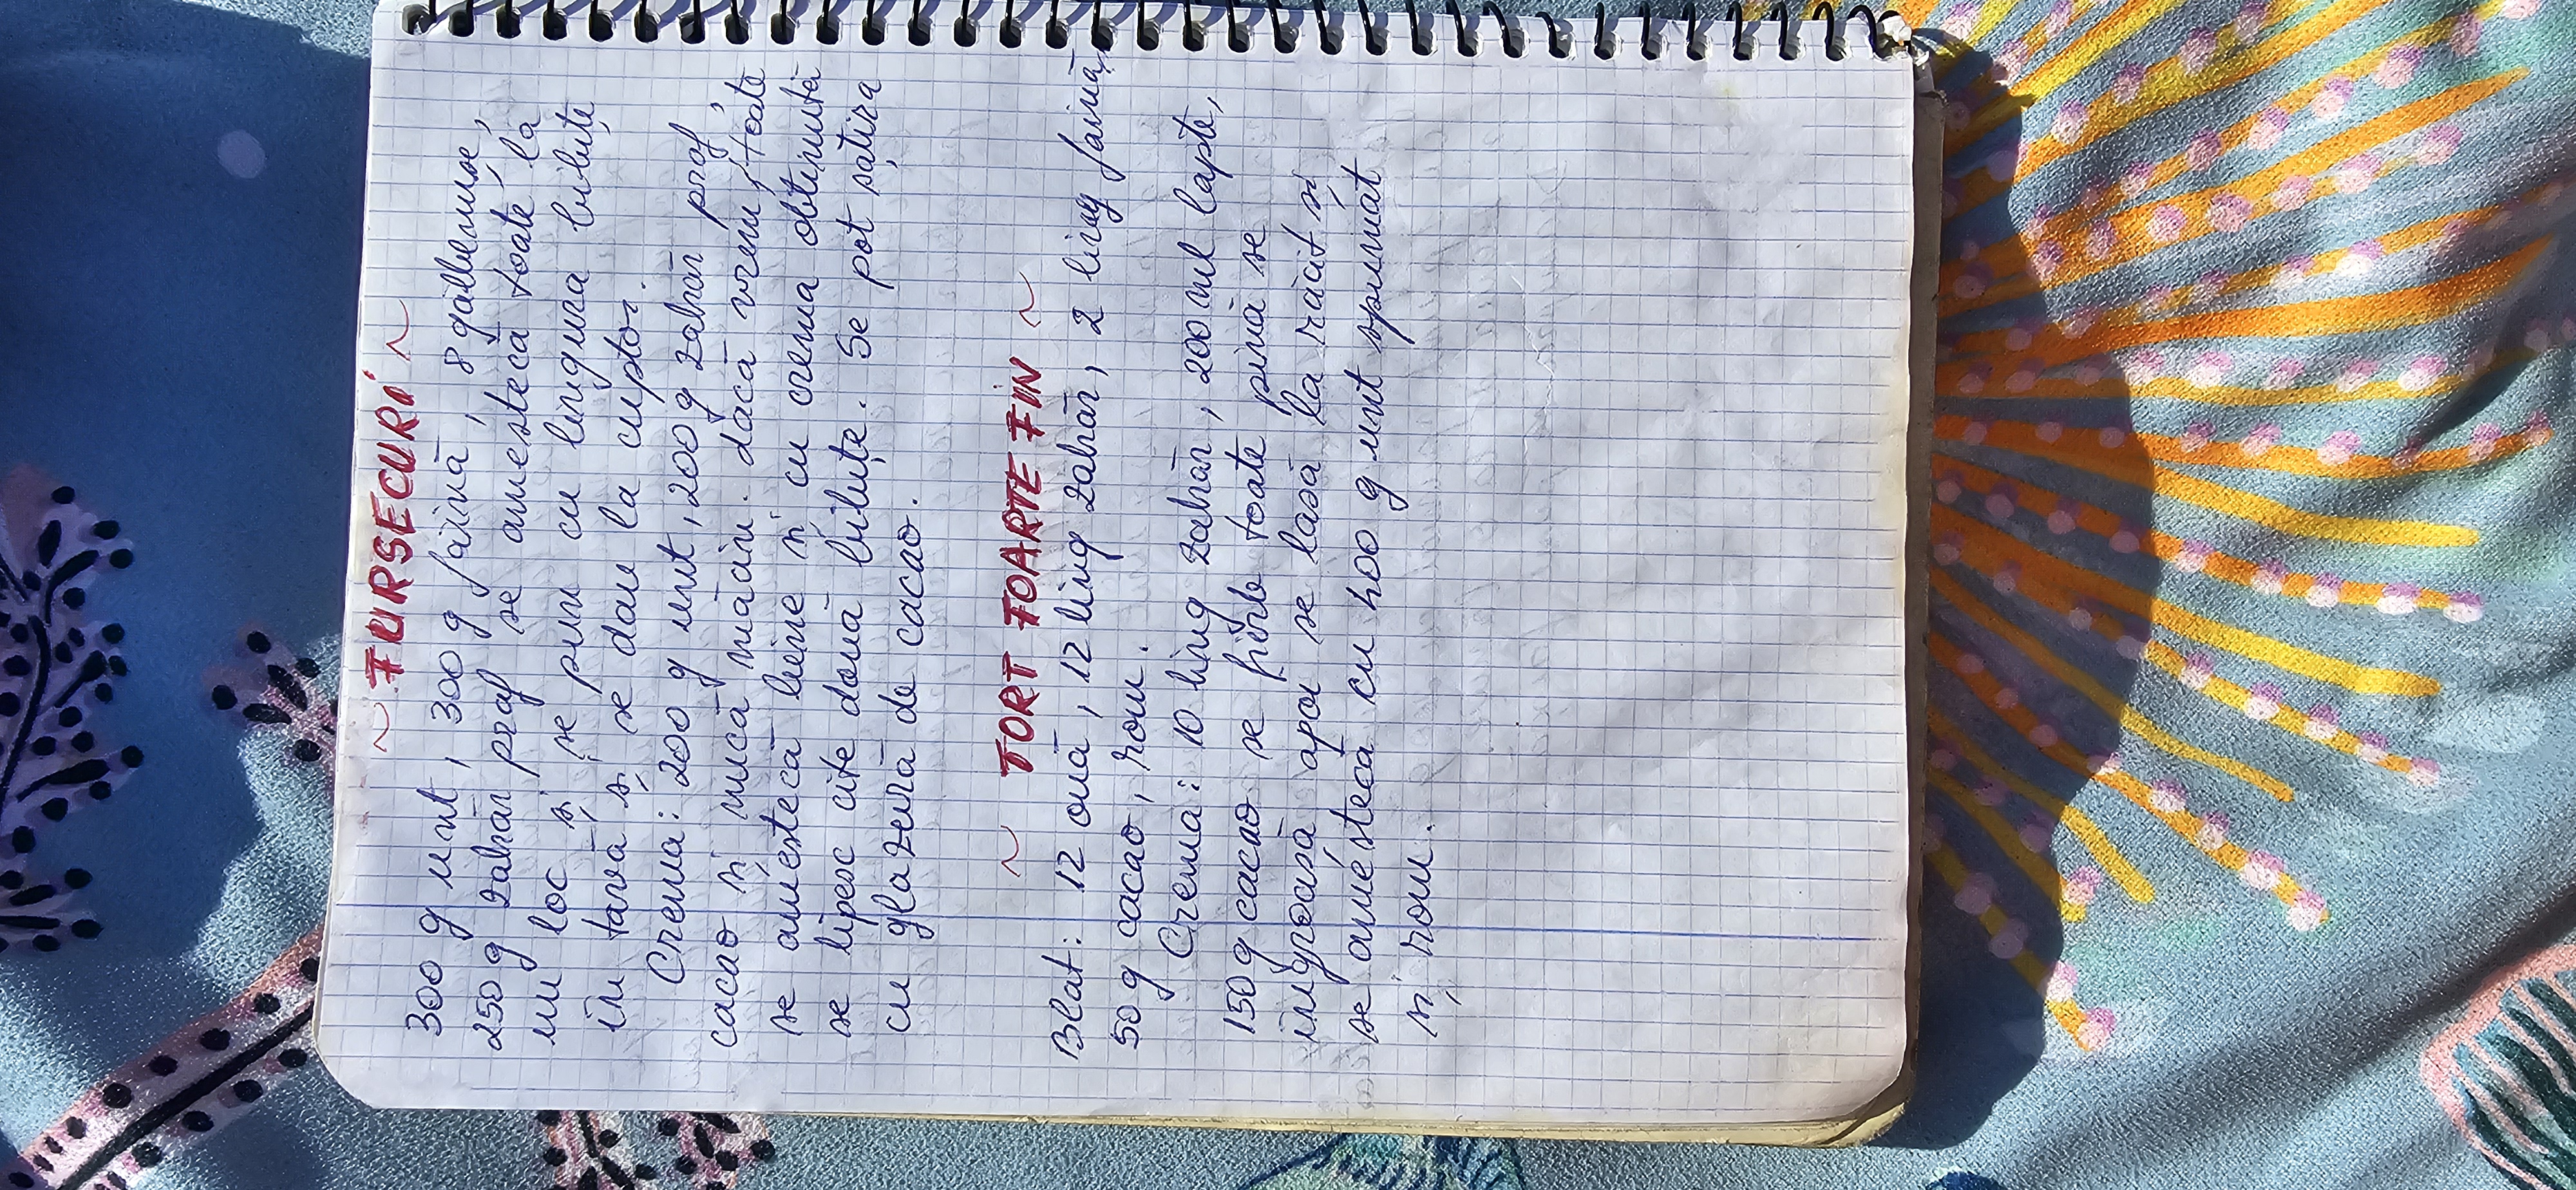 ~ FURSECURI ~
300 g unt, 300 g făină, 8 gălbenușe,
250 g zahăr praf se amestecă toate la
un loc și se pun cu lingura biluțe
în tavă și se dau la cuptor.
Crema: 200 g unt, 200 g zahăr praf,
cacao și nucă măcin. dacă vrem, toate
se amestecă bine și cu crema obținută
se lipesc cîte două biluțe. Se pot șațira
cu glazură de cacao.
~ TORT FOARTE FIN ~
Blat: 12 ouă, 12 ling zahăr, 2 ling făină,
50 g cacao, rom.
Crema: 10 ling zahăr, 200 ml lapte,
150 g cacao se fierb toate pînă se
îngroașă apoi se lasă la răcit și
se amestecă cu 400 g unt spumat
și rom.